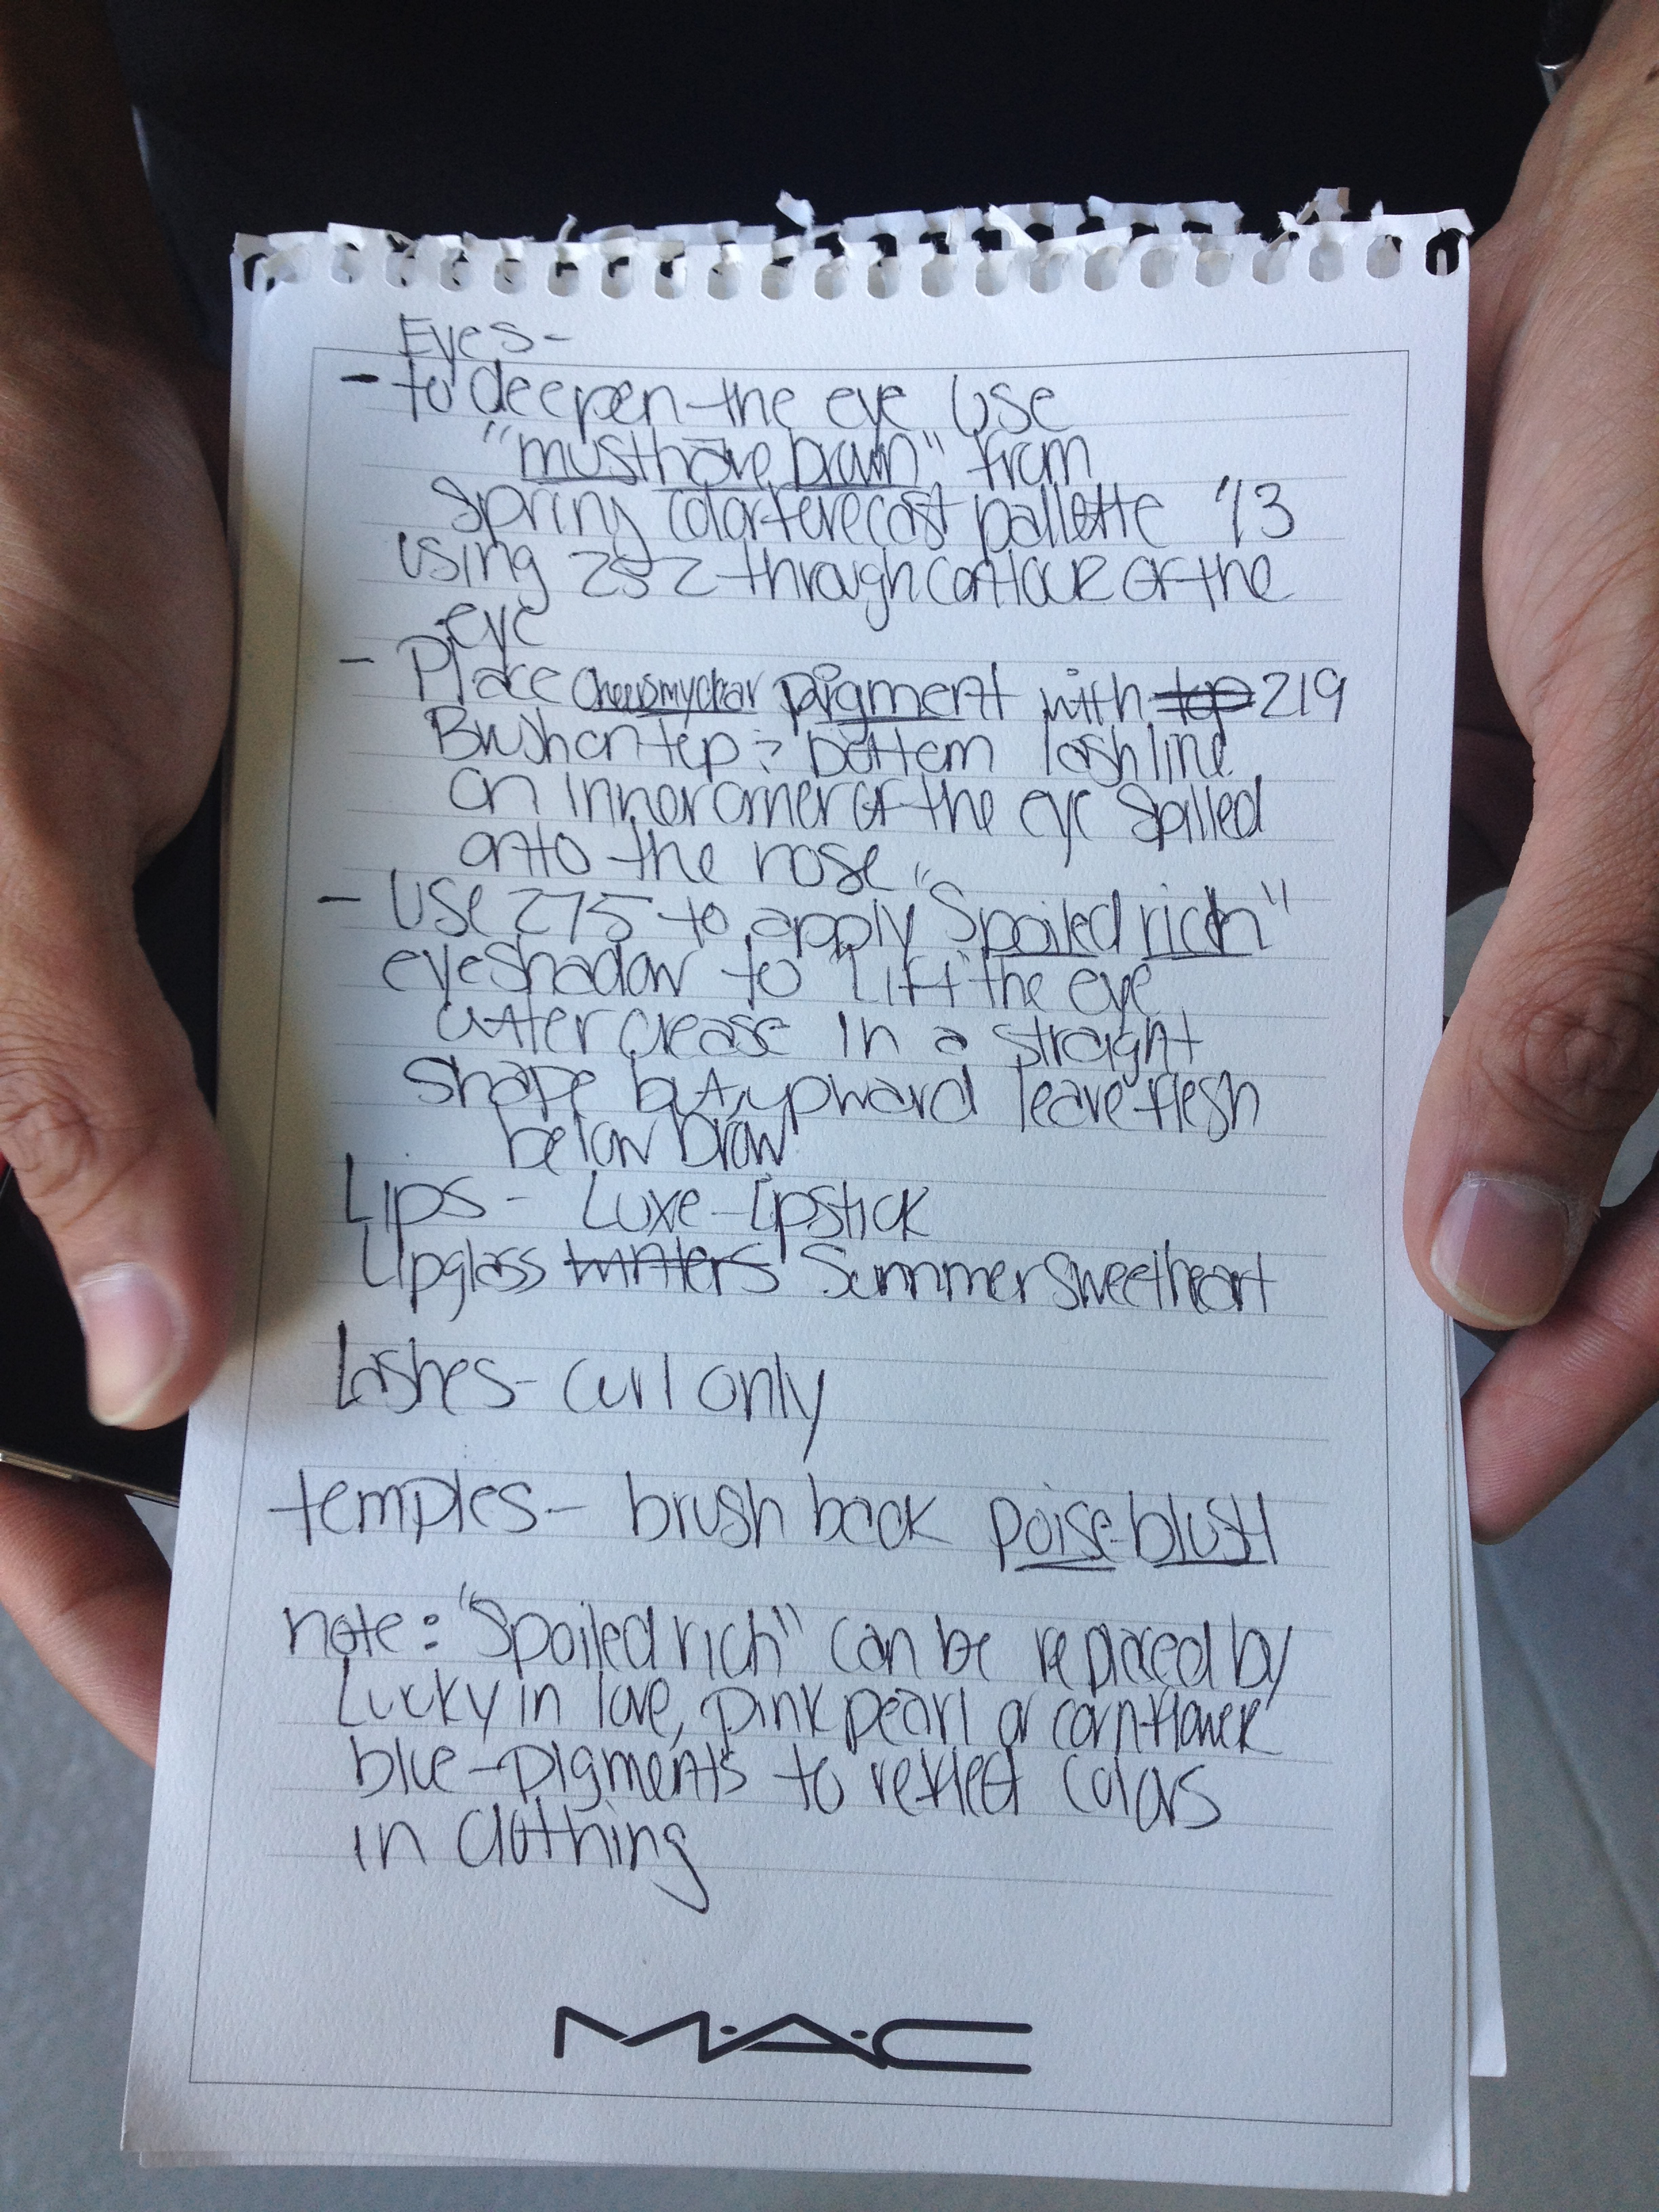 Eyes-
- to deepen the eye use
"musthave brown" from
Spring colorforecast pallette '13
using 252 through contour of the
eye
- Place Cheersmydear pigment with top 219
Brush on top & bottom lash line
on inner corner of the eye spilled
onto the nose
- Use 275 to apply "Spoiled rich"
eyeshadow to "Lift" the eye
outer crease in a straight
shape but upward leave flesh
below brow
Lips - Luxe-Lipstick
Lipglass winters Summer sweetheart
Lashes- curl only
temples- brush back poise-blusH
note: "Spoiled rich" can be replaced by
Lucky in love, pink pearl or cornflower
blue-pigments to reflect colors
in clothing
M·A·C